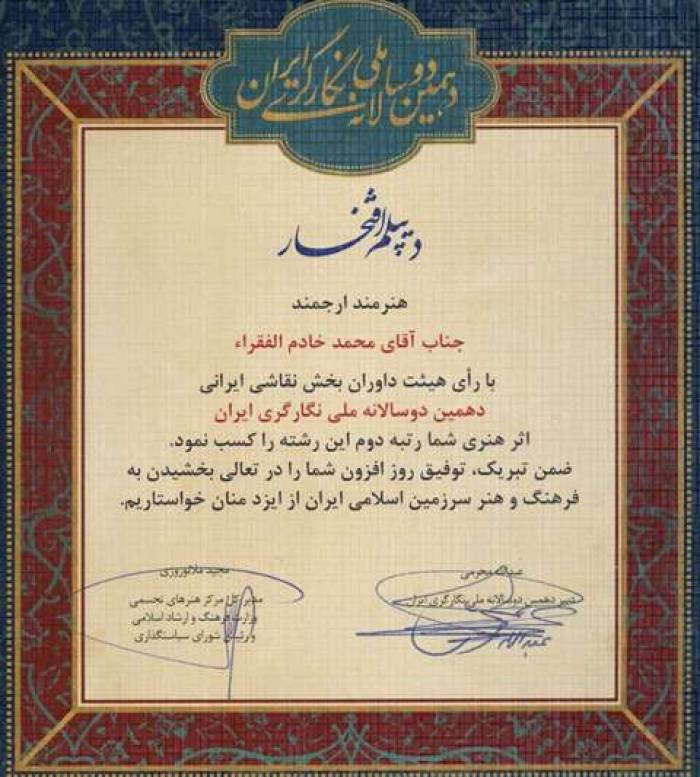 دهمین دوسالانه ملی نگارگری ایران
دیپلم افتخار
هنرمند ارجمند
جناب آقای محمد خادم الفقراء
با رأی هیئت داوران بخش نقاشی ایرانی
دهمین دوسالانه ملی نگارگری ایران
اثر هنری شما رتبه دوم این رشته را کسب نمود.
ضمن تبریک، توفیق روز افزون شما را در تعالی بخشیدن به
فرهنگ و هنر سرزمین اسلامی ایران از ایزد منان خواستاریم.
عبداله محرمی
دبیر دهمین دوسالانه ملی نگارگری ایران
مجید ملانوروزی
مدیر کل مرکز هنرهای تجسمی
وزارت فرهنگ و ارشاد اسلامی
و رئیس شورای سیاستگذاری